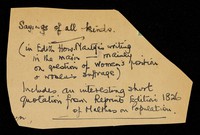 Sayings of all kinds.
(in Edith How-Martyn's writing
in the main — mainly
on question of women's position
& women's suffrage)
Includes an interesting short
quotation from Reprint Edition 1826
of Malthus on Population.